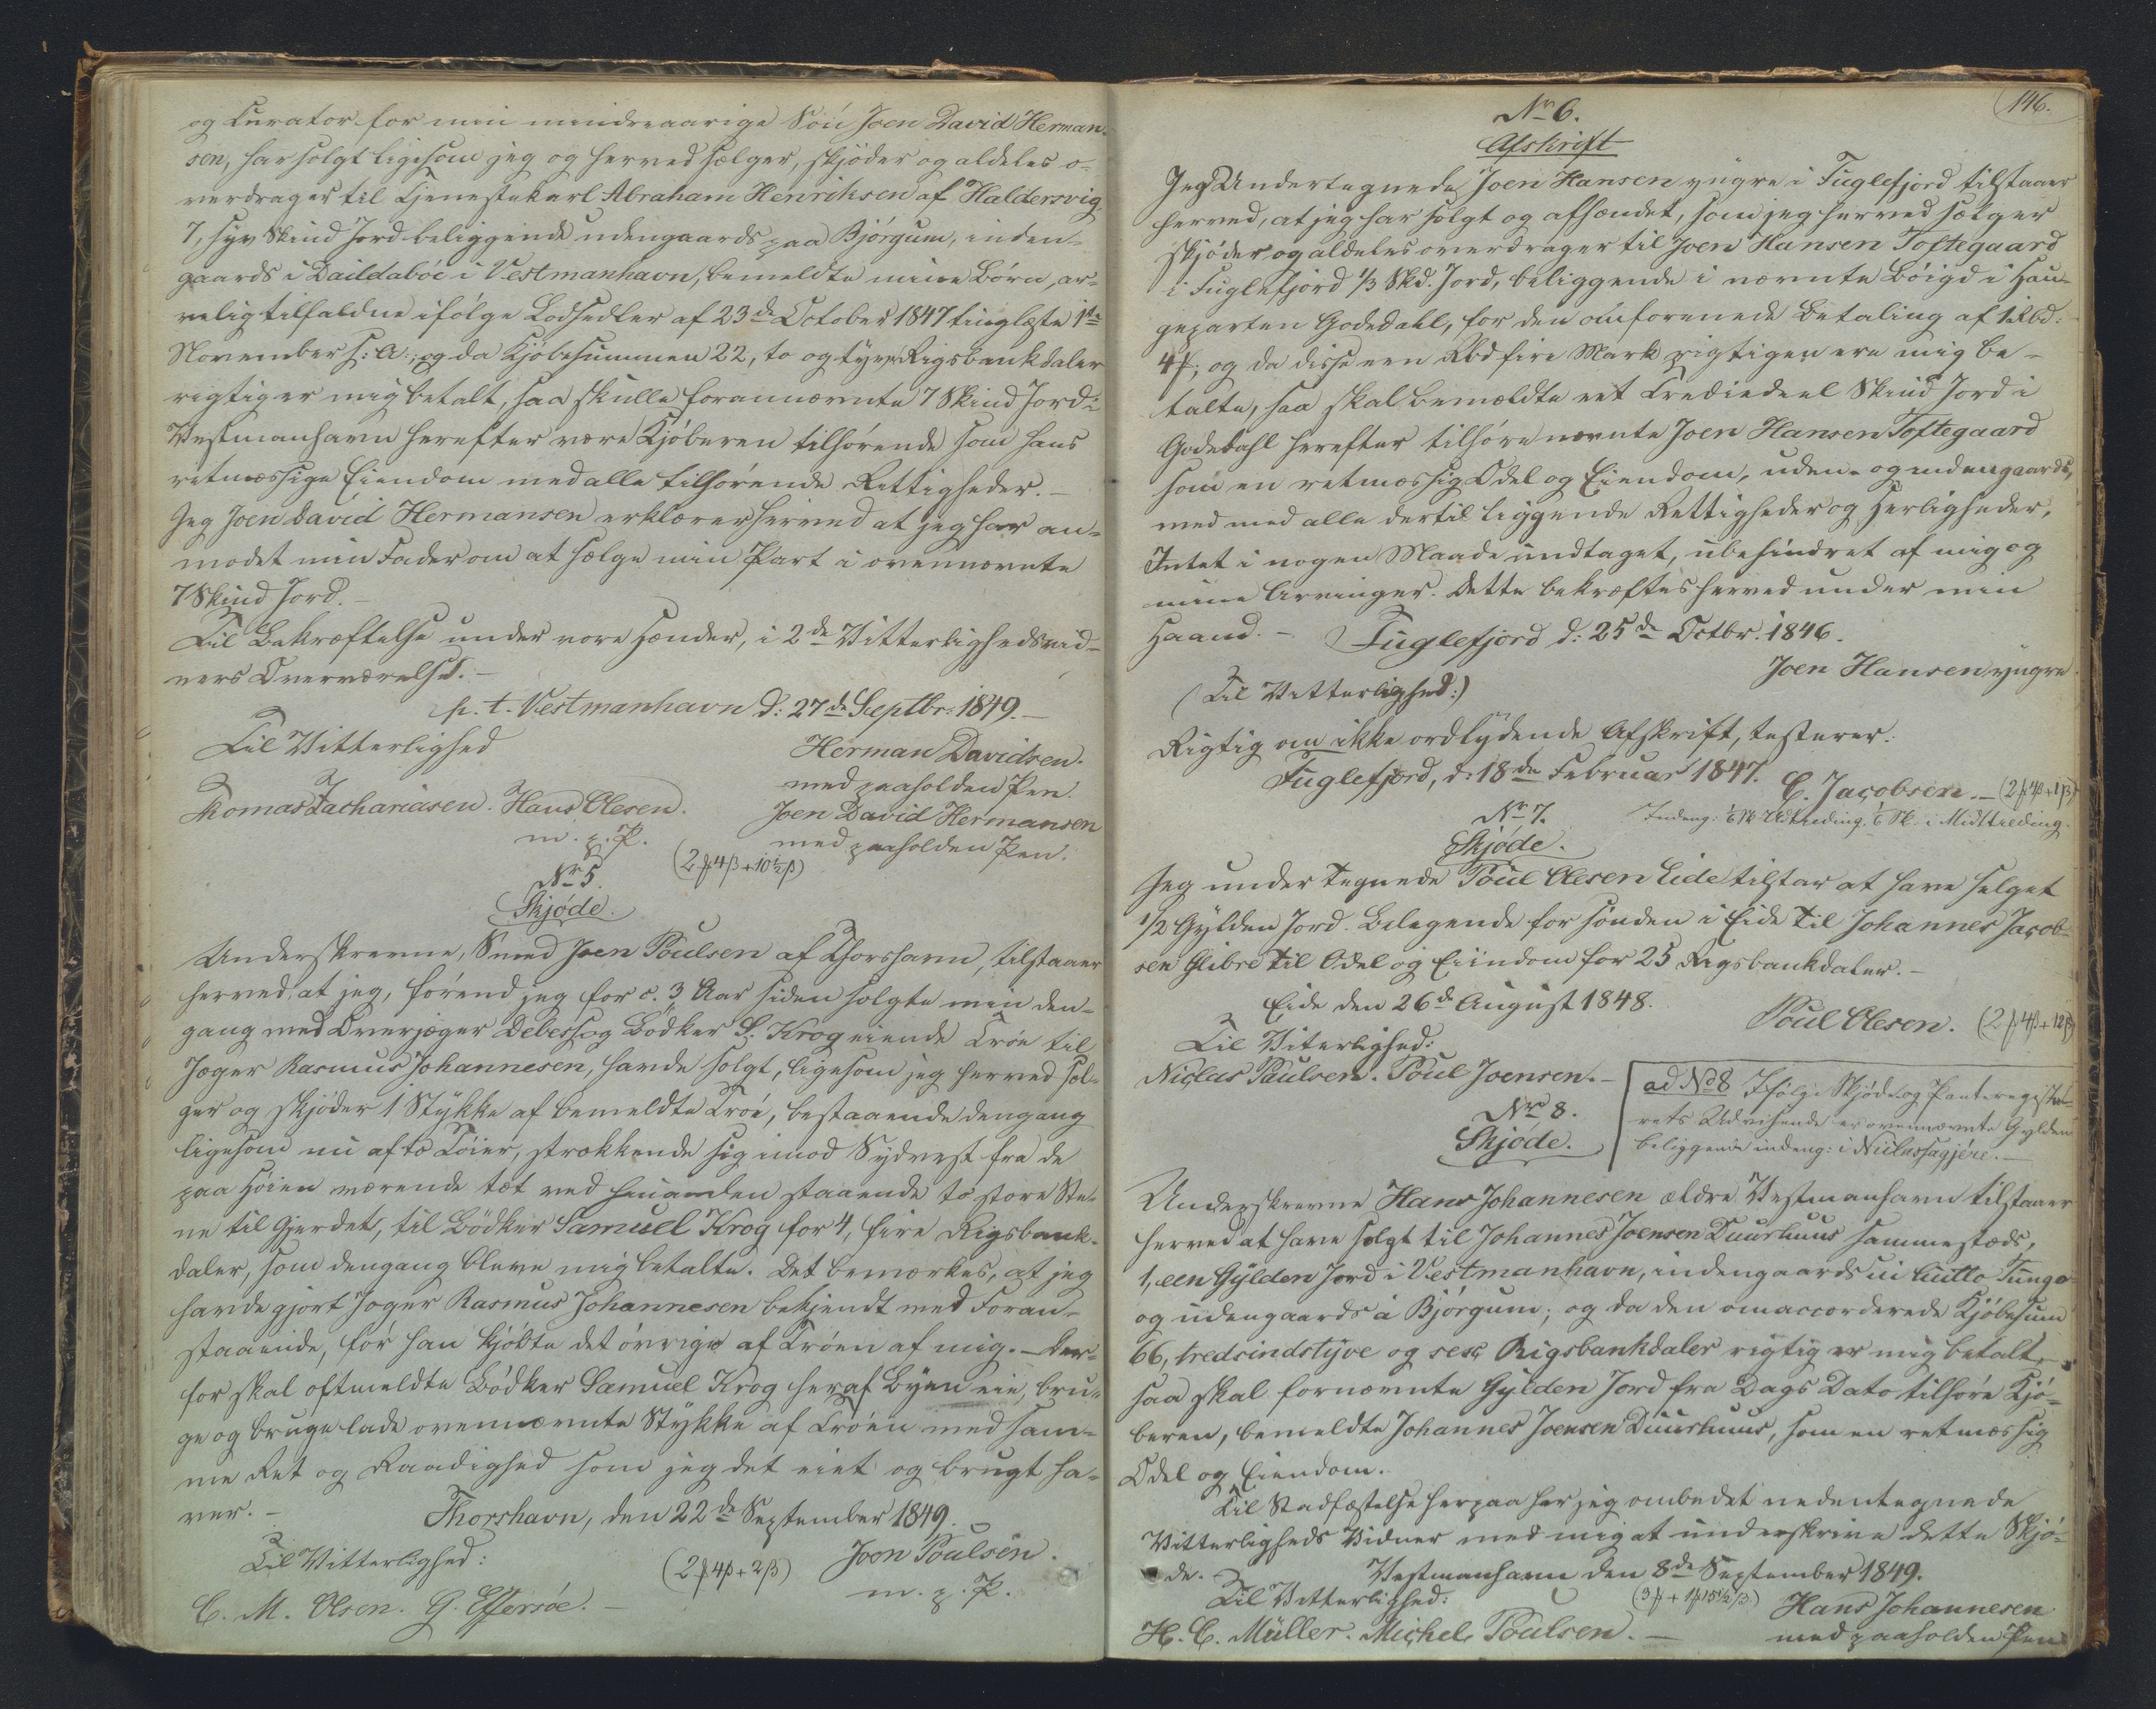 og Curator for min mindreaarige Sön Joen David Herman-
sen, har solgt ligesom jeg og herved sælger, skjöder og aldeles o-
verdrager til Tjenestekarl Abraham Henriksen af Haldersvig
7, syv Skind Jord beliggende udengaards paa Björgum, inden-
gaards i Daildaböe i Vestmanhavn, bemeldte mine Börn ar-
velig tilfaldne ifölge Lodsedler af 23de October 1847 tinglæste 1ste
November s: A:, og da Kjöbesummen 22, to og tyve Rigsbankdaler
rigtig er mig betalt, saa skulle forannævnte 7 Skind Jord i
Vestmanhavn herefter være Kjöberen tilhörende som hans
retmæssige Eiendom med alle tilhörende Rettigheder. -
Jeg Joen David Hermansen erklærer herved at jeg har an-
modet min Fader om at sælge min Part i ovennævnte
7 Skind Jord. -
Til Bekræftelse under vore Hænder, i 2de Vitterlighedsvid-
ners Overværelse. -
p. t. Vestmanhavn d: 27de Septbr: 1849. -
Til Vitterlighed Herman Davidsen.
med paaholden Pen.
Thomas Zachariasen. Hans Olesen. Joen David Hermansen
m. p. P. med paaholden Pen.
(2 ℳ 4 β + 10½ β)
Nr 5.
Skjöde.
Underskrevne, Smed Joen Poulsen af Thorshavn, tilstaaer
herved, at jeg, förend jeg for c. 3 Aar siden solgte min den-
gang med Overjæger Debes og Bödker S. Krog eiende Tröe til
Jæger Rasmus Johannesen, havde solgt, ligesom jeg herved sæl-
ger og skjöder 1 Stykke af bemeldte Tröe, bestaaende dengang
ligesom nu af to Töier, strækkende sig imod Sydvest fra de
paa Höien værende tæt ved hinanden staaende to store Ste-
ne til Gjerdet, til Bödker Samuel Krog for 4, fire Rigsbank-
daler, som dengang bleve mig betalte. Det bemærkes, at jeg
havde gjort Jæger Rasmus Johannesen bekjendt med Foran-
staaende, för han kjöbte det övrige af Tröen af mig. - Der-
for skal oftmeldte Bödker Samuel Krog heraf Byen eie, bru-
ge og bruge lade ovennævnte Stykke af Tröen med sam-
me Ret og Raadighed som jeg det eiet og brugt ha-
ver. - Thorshavn, den 22de September 1849.
Til Vitterlighed: (2 ℳ 4 β + 2 β) Joen Poulsen.
C. M. Olsen. G. Effersöe. - m. p. P.
146.
Nr 6.
Afskrift
Jeg Undertegnede Joen Hansen yngre i Fuglefjord tilstaaer
herved, at jeg har solgt og afhændet, som jeg herved sælger
skjöder og aldeles overdrager til Joen Hansen Toftegaard
i Fuglefjord 1/3 Skd. Jord, beliggende i nævnte Böigd i Hau-
geparten Godedahl, for den omforenede Betaling af 1 Rbd:
4 ℳ; og da disse een Rbd fire Mark rigtigen ere mig be-
talte, saa skal bemeldte eet Trediedeel Skind Jord i
Godedahl herefter tilhöre nævnte Joen Hansen Toftegaard
som en retmæssig Odel og Eiendom, uden- og indengaards,
med med alle dertil liggende Rettigheder og Herligheder,
Intet i nogen Maade undtaget, ubehindret af mig og
mine Arvinger. Dette bekræftes herved under min
Haand. - Fuglefjord d: 25de Octbr. 1846.
Joen Hansen yngre
(Til Vitterlighed:)
Rigtig om ikke ordlydende Afskrift, testerer:
Fuglefjord, d: 18de Februar 1847. C. Jacobsen. - (2 ℳ 4 β + 1 β)
Nr 7. Indeng: 1/6 Sk Udtreding. 1/6 Sk. i Midttreding.
Skjöde.
Jeg under tegnede Poul Olesen Eide tilstar at have selget
1/2 Gylden Jord. Belegende for sönden i Eide til Johannes Jacob-
sen Glibre til Odel og Eiindom for 25 Rigsbankdaler. -
Eide den 26de August 1848.
Poul Olesen. (2 ℳ 4 β + 12 β)
Til Viterlighed:
Niclas Paulsen. Poul Joensen. -
ad No 8 Ifölge Skjöde og Panteregiste-
rets Udvisende er ovennævnte Gylden
beliggende indeng: i Niclasagjére. -
Nr 8.
Skjöde.
Underskrevne Hans Johannesen ældre Vestmanhavn tilstaaer
herved at have solgt til Johannes Joensen Duurhuus sammestæds,
1, een Gylden Jord i Vestmanhavn, indengaards ui Luitlo Tunge
og udengaards á Björgum; og da den omaccorderede Kjöbesum
66, tredsindstyve og sex Rigsbankdaler rigtig er mig betalt,
saa skal fornævnte Gylden Jord fra Dags Dato tilhöre Kjö-
beren, bemeldte Johannes Joensen Duurhuus, som en retmæssig
Odel og Eiendom.
Til Stadfæstelse herpaa har jeg ombedet nedentegnede
Vitterligheds Vidner med mig at underskrive dette Skjö-
de. - Vestmanhavn den 8de September 1849.
Til Vitterlighed: (3 ℳ + 1 ℳ 15½ β) Hans Johannesen
H. C. Müller. Michel Poulsen. - med paaholden Pen